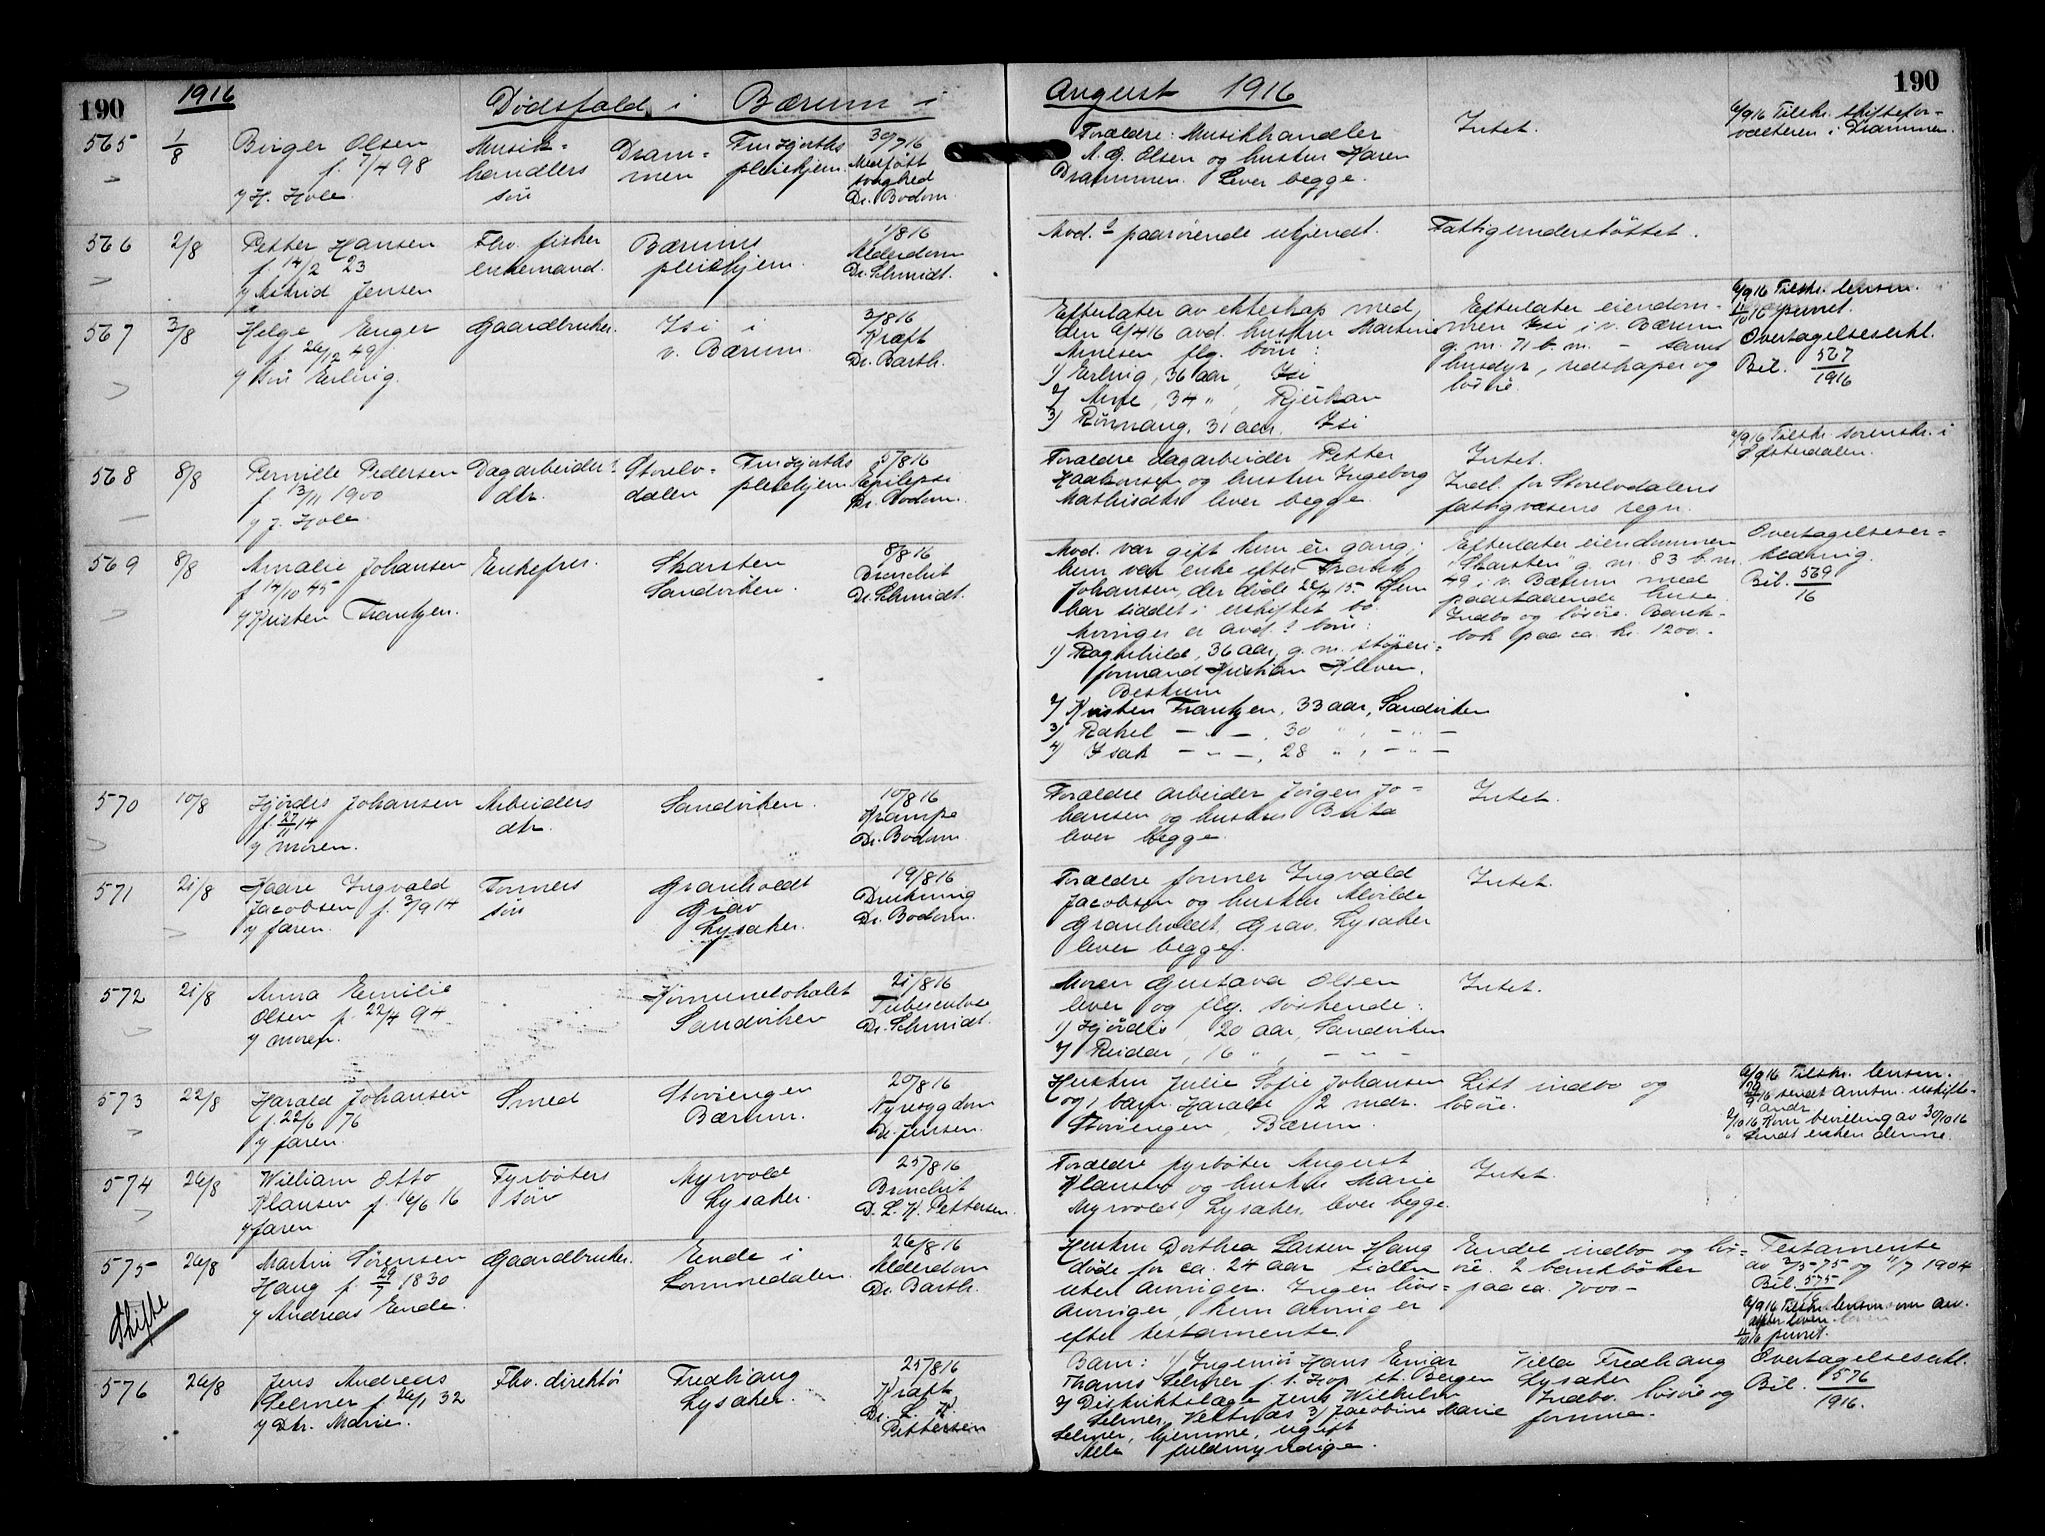 190
1916
Dødsfald i Bærum i
August 1916
190
565
1/8
Birger Olsen
f. 7/4 98
v/ H. Hole.
Musik-
handlers
søn
Dram-
men
Fru Hjorths
pleiehjem.
30/7 16
Medfødt
svaghed
Dr. Bodom
Forældre: Musikhandler
A. G. Olsen og hustru Karen
Drammen. Lever begge.
Intet.
6/9 16 Tilskr. skiftefor-
valteren i Drammen.
566
2/8
Petter Hansen
f. 14/2 23
v/ Astrid Jensen
Fhv. fisker
enkemand.
Bærums
pleiehjem.
1/8 16
Alderdom
Dr. Schmidt.
Avd.s paarørende ukjendt.
Fattigunderstøttet.
567
3/8
Helge Enger
f. 26/12 49
v/ søn Erling.
Gaardbruker.
Isi i
v. Bærum.
3/8 16
Kræft
Dr. Barth.
Efterlater av ekteskap med
den 6/4 16 avd. hustru Martine
Arnesen flg. børn:
1) Erling, 36 aar, Isi
2) Arne, 34 " , Rjukan
3) Rønnaug, 31 aar. Isi
Efterlater eiendom-
men Isi i v. Bærum
g. m. 71 b. m. - samt
husdyr, redskaper og
løsøre.
6/9 16 Tilskr. lensm.
/10 16 purret.
Overtagelseserkl.
Bil. 567/1916
568
8/8
Pernille Pedersen
f. 13/11 1900
v/ J. Hole.
Dagarbeiders
dtr.
Storelv-
dalen
Fru Hjorths
pleiehjem
5/8 16
Epilepsi
Dr. Bodom.
Forældre dagarbeider Petter
Haakonsen og hustru Ingeborg
Mathisdtr. lever begge.
Intet.
Indl. for Storelvdalens
fattigvæsens regn.
6/9 16 Tilskr. sorenskr. i
Østerdalen.
569
8/8
Amalie Johansen
f. 14/10 45
v/ Kristen Frantzen.
Enkefru.
Skarsten
Sandviken.
8/8 16
Bronchit
Dr. Schmidt.
Avd. var gift kun én gang;
hun var enke efter Frantz
Johansen, der døde 22/4 15. Hun
har siddet i uskiftet bo.
Arvinger er avd.s børn:
1) Ragnhild, 36 aar, g. m. støperi-
formand Kristian Klever.
Bestum
2) Kristen Frantzen, 33 aar, Sandviken
3) Rakel - " - , 30 " , - " -
4) Isak - " - , 28 " , - " -
Efterlater eiendommen
"Skarsten" g. m. 83 b. m.
49 i v. Bærum med
paastaaende huse.
Indbo og løsøre. Bank-
bok paa ca. kr. 1200.-
Overtagelseser-
klæring.
Bil. 569/16
570
10/8
Hjørdis Johansen
f. 27/11 14
v/ moren.
Arbeiders
dtr.
Sandviken.
10/8 16
Krampe
Dr. Bodom.
Forældre arbeider Jørgen Jo-
hansen og hustru Berta
lever begge.
Intet.
571
21/8
Kaare Ingvald
Jacobsen f. 3/9 14
v/ faren.
Formers
søn
Granholdt
Grav
Lysaker.
19/8 16
Drukning
Dr. Bodom.
Forældre former Ingvald
Jacobsen og hustru Alvilde
Granholdt, Grav, Lysaker
lever begge.
Intet.
572
21/8
Anna Emilie
Olsen f. 22/4 94
v/ moren.
Komunelokalet
Sandviken
21/8 16
Tuberculose
Dr. Schmidt.
Moren Gustava Olsen
lever og flg. søskende:
1) Hjørdis, 20 aar, Sandviken
2) Reidar, 16 " , - " -
Intet.
573
22/8
Harald Johansen
f. 22/6 76
v/ faren.
Smed
Stovienger
Bærum.
20/8 16
Nyresygdom
Dr. Jensen.
Hustru Julie Sofie Johansen
og 1 barn Harald 2 mdr.
Stoviengen, Bærum.
Litt indbo og
løsøre.
6/9 16 Tilskr. lensm.
29/9 16 sendt amtm. uskifte-
andr.
2/10 16, Kom bevilling av 30/10 16
" Sendt enken denne.
574
26/8
William Otto
Klausen f. 16/6 16
v/ faren
Fyrbøters
søn
Myrvold
Lysaker.
25/8 16
Bronchit
D. L. K. Pettersen.
Forældre fyrbøter August
Klausen og hustru Marie
Myrvold, Lysaker, lever begge.
Intet.
575
Skifte
26/8
Martin Sørensen
Haug f. 29/7 1830
v/ Andreas Eende.
Gaardbruker.
Eende i
Lommedalen.
26/8 16
Alderdom
Dr. Barth.
Hustru Dorthea Larsen Haug
døde for ca. 24 aar siden
uten arvinger. Ingen livs-
arvinger, kun arvinger
efter testamente.
Endel indbo og løs-
øre. 2 bankbøker
paa ca. 7000-
Testamente
av 3/5-75 og 11/7 1904
Bil. 575/16
6/9 16 Tilskr. lensm om arv.
efter loven
4/10 16 purret.
576
26/8
Jens Andreas
Selmer f. 26/1 32
v/ Dtr. Marie.
Fhv. direktør
Fredhaug
Lysaker.
25/8 16
Kræft
Dr. L. K.
Pettersen
Barn: 1) Ingeniør Hans Einar
Thams Selmer f. t. Hop st. Bergen
2) Distriktslæge Jens Wilhelm
Selmer, Vestnæs 3) Jacobine Marie
Selmer, hjemme, ugift
Alle fuldmyndige.
Villa Fredhaug
Lysaker
Indbo, løsøre og
formue.
Overtagelseserkl.
Bil. 576/1916.